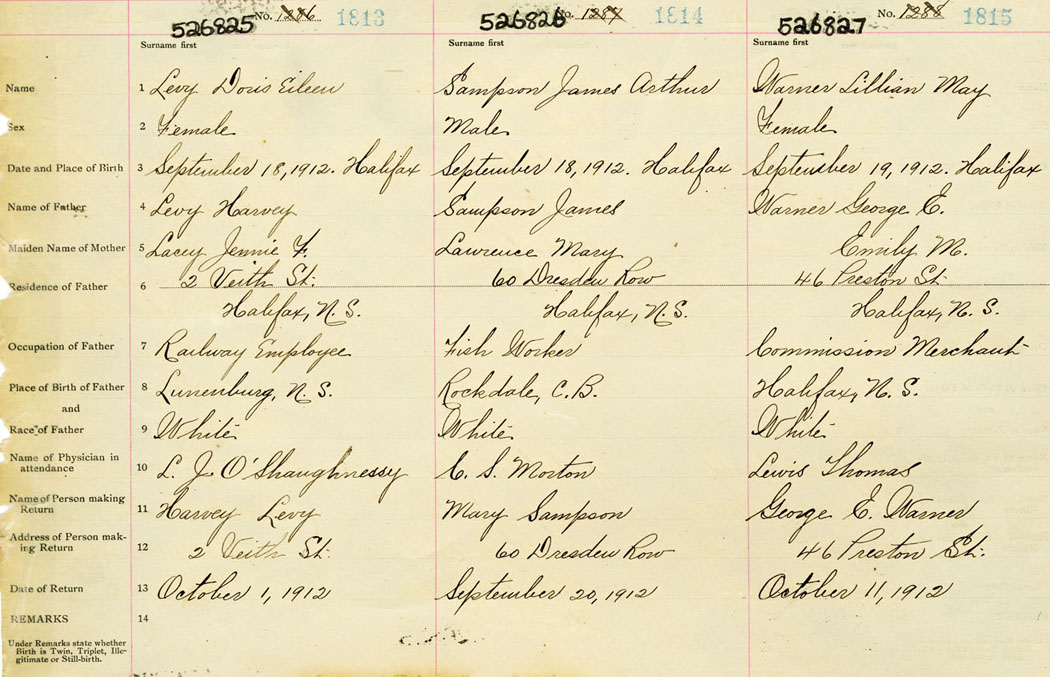 526825 No. 1286 1813 526826 No. 1287 1814 526827 No. 1288 1815
Surname first Surname first Surname first
Name 1 Levy Doris Eileen Sampson James Arthur Warner Lillian May
Sex 2 Female Male Female
Date and Place of Birth 3 September 18, 1912. Halifax September 18, 1912. Halifax September 19, 1912. Halifax
Name of Father 4 Levy Harvey Sampson James Warner George E.
Maiden Name of Mother 5 Lacey Jennie F. Lawrence Mary Emily M.
Residence of Father 6 2 Veith St. 60 Dresden Row 46 Preston St.
Halifax, N.S. Halifax, N.S. Halifax, N.S.
Occupation of Father 7 Railway Employee Fish Worker Commission Merchant
Place of Birth of Father 8 Lunenburg, N.S. Rockdale, C.B. Halifax, N.S.
and
Race of Father 9 White White White
Name of Physician in
attendance 10 L. J. O'Shaughnessy C. S. Morton Lewis Thomas
Name of Person making
Return 11 Harvey Levy Mary Sampson George E. Warner
Address of Person mak-
ing Return 12 2 Veith St. 60 Dresden Row 46 Preston St.
Date of Return 13 October 1, 1912 September 20, 1912 October 11, 1912
REMARKS 14
Under Remarks state whether
Birth is Twin, Triplet, Ille-
gitimate or Still-birth.